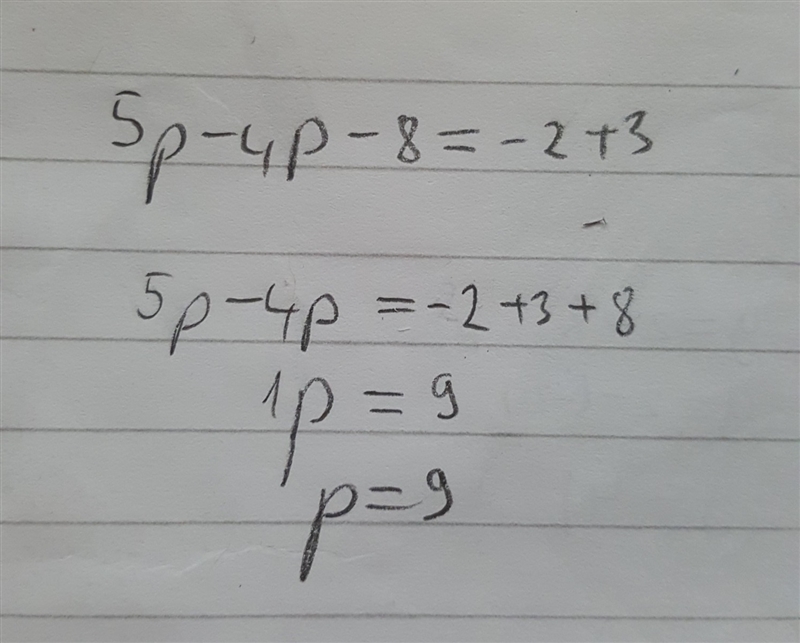 5p-4p-8=-2+3
5p-4p=-2+3+8
1p=9
p=9